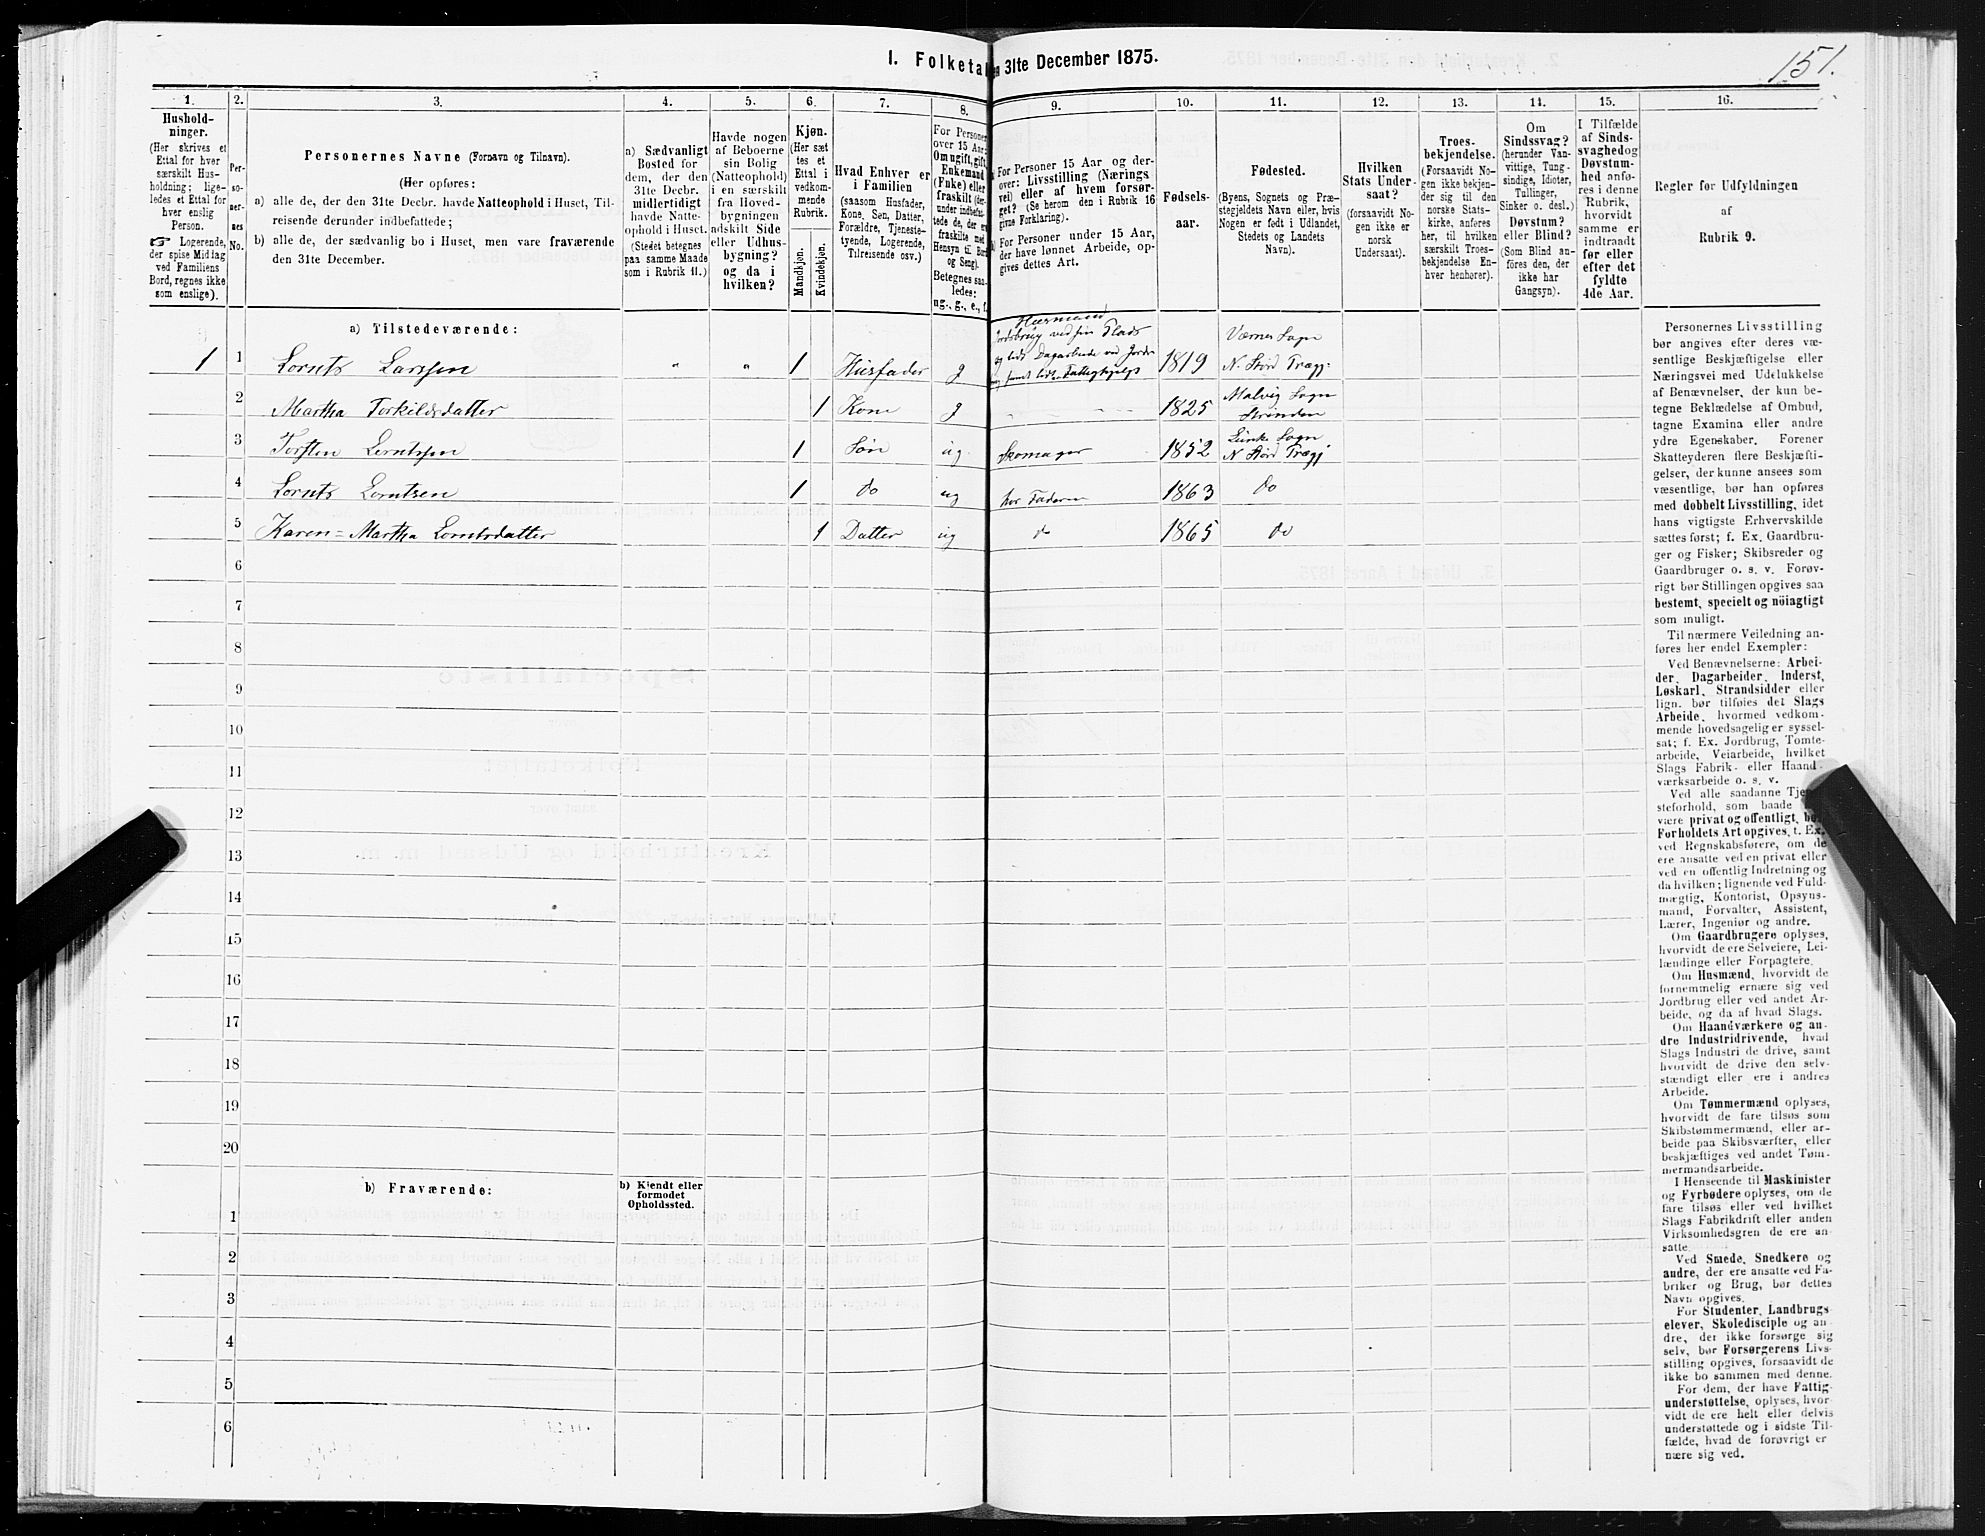 151.
I. Folketal
en 31te December 1875.
1.
Hushold-
ninger.
(Her skrives et
Ettal for hver
særskilt Hus-
holdning; lige-
ledes et Ettal for
hver enslig
Person.
☞ Logerende,
der spise Middag
ved Familiens
Bord, regnes ikke
som enslige).
2.
Per-
so-
ner-
nes
No.
3.
Personernes Navne (Fornavn og Tilnavn).
(Her opføres:
a) alle de, der den 31te Decbr. havde Natteophold i Huset, Til-
reisende derunder indbefattede;
b) alle de, der sædvanlig bo i Huset, men vare fraværende
den 31te December.
4.
a) Sædvanligt
Bosted for
dem, der den
31te Decbr.
midlertidigt
havde Natte-
ophold i Huset.
(Stedet betegnes
paa samme Maade
som i Rubrik 11.)
5.
Havde nogen
af Beboerne
sin Bolig
(Natteophold)
i en særskilt
fra Hoved-
bygningen
adskilt Side
eller Udhus-
bygning?
og da i
hvilken?
6.
Kjøn.
(Her sæt
tes et
Ettal i
vedkom-
mende
Rubrik.
Mandkjøn.
Kvindekjøn.
7.
Hvad Enhver er
i Familien
(saasom Husfader,
Kone, Søn, Datter,
Forældre, Tjeneste-
tyende, Logerende,
Tilreisende osv.)
8.
For Personer
over 15 Aar:
Om ugift, gift,
Enkemand
(Enke) eller
fraskilt (der-
under indbefat-
tede de, der ere
fraskilte med
Hensyn til Bord
og Seng).
Betegnes saa-
ledes:
ug., g., e., f.
9.
For Personer 15 Aar og der-
over: Livsstilling (Nærings
vei) eller af hvem forsør-
get? (Se herom den i Rubrik 16
givne Forklaring).
For Personer under 15 Aar,
der have lønnet Arbeide, op-
gives dettes Art.
10.
Fødsels-
aar.
11.
Fødested.
(Byens, Sognets og Præ-
stegjeldets Navn eller, hvis
Nogen er født i Udlandet,
Stedets og Landets
Navn).
12.
Hvilken
Stats Under-
saat?
(forsaavidt No-
gen ikke er
norsk
Undersaat).
13.
Troes-
bekjendelse.
(Forsaavidt No-
gen ikke bekjen-
der sig til den
norske Stats-
kirke, anføres
her, til hvilken
særskilt Troes-
bekjendelse En-
hver henhører).
14.
Om
Sindssvag?
(herunder Van-
vittige, Tung-
sindige, Idioter,
Tullinger,
Sinker o. desl.)
Døvstum?
eller Blind?
(Som Blind an-
føres den, der
ikke har
Gangsyn).
15.
I Tilfælde
af Sinds-
svaghed og
Døvstum-
hed anfø-
res i denne
Rubrik,
hvorvidt
samme er
indtraadt
før eller
efter det
fyldte
4de Aar.
16.
Regler for Udfyldningen
af
Rubrik 9.
a) Tilstedeværende:
1 1 Lornts Larssen " " 1 Husfader g Husmand Jordbrug ved sin Plads og lidt Dagarbeide ved Jordbrug samt lidt Fattighjelp 1819 Værnes Sogn N. Stjørd Prægj.
2 Martha Torkildsdatter 1 Kone g 1825 Malvig Sogn Strinden
3 Torsten Lorntssen 1 Søn ug. Skomager 1852 Lånke Sogn N. Stjørd Prægj
4 Lornts Lorntsen 1 do ug hos Faderen 1863 do
5 Karen=Martha Lorntsdatter 1 Datter ug do 1865 do
6
7
8
9
10
11
12
13
14
15
16
17
18
19
20
b) Fraværende:
b) Kjendt eller
formodet
Opholdssted.
1
2
3
4
5
6
Personernes Livsstilling
bør angives efter deres væ-
sentlige Beskjæftigelse eller
Næringsvei med Udelukkelse
af Benævnelser, der kun be-
tegne Beklædelse af Ombud,
tagne Examina eller andre
ydre Egenskaber. Forener
Skatteyderen flere Beskjæfti-
gelser, der kunne ansees som
væsentlige, bør han opføres
med dobbelt Livsstilling, idet
hans vigtigste Erhvervskilde
sættes først; f. Ex. Gaardbru-
ger og Fisker; Skibsreder og
Gaardbruger o. s. v. Forøv-
rigt bør Stillingen opgives saa
bestemt, specielt og nöiagtigt
som muligt.
Til nærmere Veiledning an-
føres her endel Exempler:
Ved Benævnelserne: Arbei-
der, Dagarbeider, Inderst,
Løskarl, Strandsidder eller
lign. bør tilføies det Slags
Arbeide, hvormed vedkom-
mende hovedsagelig er syssel-
sat; f. Ex. Jordbrug, Tomte-
arbeide, Veiarbeide, hvilket
Slags Fabrik- eller Haand-
værksarbeide o. s. v.
Ved alle saadanne Tjene-
steforhold, som baade
være privat og offentligt, bør
Forholdets Art opgives, t. Ex.
ved Regnskabsførere, om de
ere ansatte ved en privat eller
ved en offentlig Indretning og
da hvilken; lignende ved Fuld-
mægtig, Kontorist, Opsyns-
mand, Forvalter, Assistent,
Lærer, Ingeniør og andre.
Om Gaardbrugere oplyses,
hvorvidt de ere Selveiere, Lei-
lændinge eller Forpagtere.
Om Husmænd, hvorvidt de
fornemmelig ernære sig ved
Jordbrug eller ved andet Ar-
beide, og da af hvad Slags.
Om Haandværkere og an-
dre Industridrivende, hvad
Slags Industri de drive, samt
hvorvidt de drive den selv-
stændigt eller ere i andres
Arbeide.
Om Tømmermænd oplyses,
hvorvidt de fare tilsøs som
Skibstømmermænd, eller ar-
beide paa Skibsværfter, eller
beskjæftiges ved andet Tøm-
mermandsarbeide.
I Henseende til Maskinister
og Fyrbødere oplyses, om de
fare tilsøs eller ved hvilket
Slags Fabrikdrift eller anden
Virksomhedsgren de ere an-
satte.
Ved Smede, Snedkere og
andre, der ere ansatte ved Fa-
briker og Brug, bør dettes
Navn opgives.
For Studenter, Landbrugs-
elever, Skoledisciple og an-
dre, der ikke forsørge sig
selv, bør Forsørgerens Livs-
stilling opgives, forsaavidt de
ikke bo sammen med denne.
For dem, der have Fattig-
understøttelse, oplyses, hvor-
vidt de ere helt eller delvis
understøttede og i sidste Til-
fælde, hvad de forøvrigt er
nære sig ved.